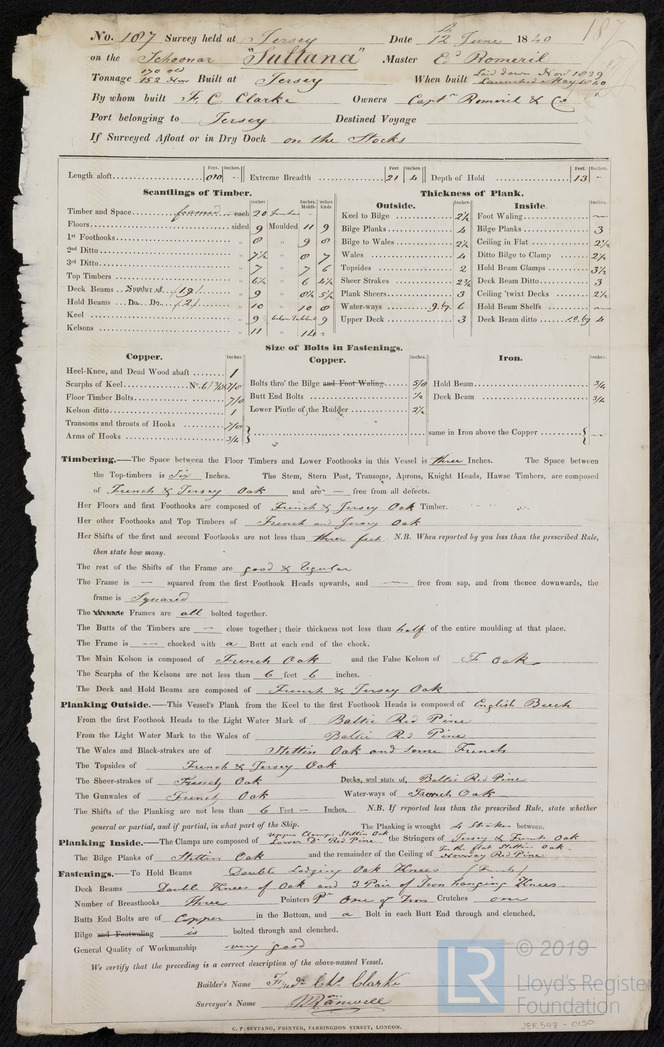 No. 187 Survey held at Jersey Date 12 June 1840 187
on the Schooner "Sultana" Master Ed Romeril
Tonnage 170 old 152 New Built at Jersey When built Laid down Nov 1839 Launched May 1840
By whom built F. C. Clarke Owners Captn Romeril & Co
Port belonging to Jersey Destined Voyage
If Surveyed Afloat or in Dry Dock on the Stocks
Length aloft Feet. Inches. Extreme Breadth Feet 21 Inches. 4 Depth of Hold Feet. 13 Inches.
Scantlings of Timber. Thickness of Plank.
Outside. Inside.
Timber and Space each 20 Inches Keel to Bilge 2½ Foot Waling —
Floors sided 9 Moulded 11 9 Bilge Planks 4 Bilge Planks 3
1st Foothooks " 8 " 9 8 Bilge to Wales 2½ Ceiling in Flat 2½
2nd Ditto " 7½ " 8 7 Wales 4 Ditto Bilge to Clamp 2½
3rd Ditto " 7 " 7 6 Topsides 2 Hold Beam Clamps 3½
Top Timbers " 6½ " 6 Sheer Strakes 2¾ Deck Beam Ditto 3
Deck Beams Number of 19 " 9 Plank Sheers 3 Ceiling 'twixt Decks 2½
Hold Beams Do. Do. 2 " 10 " 10 8 Water-ways 9 by 6 Hold Beam Shelfs —
Keel " 9 9 Upper Deck 3 Deck Beam ditto 12 by 4
Kelsons " 11
Size of Bolts in Fastenings.
Copper. Copper. Iron.
Heel-Knee, and Dead Wood abaft 1
Scarphs of Keel 7/8 Bolts thro' the Bilge and Foot Waling 5/8 Hold Beam ¾
Floor Timber Bolts 7/8 Butt End Bolts Deck Beam ¾
Kelson ditto 1 Lower Pintle of the Rudder 2½
Transoms and throats of Hooks 7/8
Arms of Hooks ¾ same in Iron above the Copper —
Timbering.—The Space between the Floor Timbers and Lower Foothooks in this Vessel is three Inches. The Space between
the Top-timbers is Six Inches. The Stem, Stern Post, Transoms, Aprons, Knight Heads, Hawse Timbers, are composed
of French & Jersey Oak and are — free from all defects.
Her Floors and first Foothooks are composed of French & Jersey Oak Timber.
Her other Foothooks and Top Timbers of French and Jersey Oak
Her Shifts of the first and second Foothooks are not less than three feet N.B. When reported by you less than the prescribed Rule,
then state how many.
The rest of the Shifts of the Frame are good & Regular
The Frame is — squared from the first Foothook Heads upwards, and — free from sap, and from thence downwards, the
frame is Squared
The Frames are all bolted together.
The Butts of the Timbers are — close together; their thickness not less than half of the entire moulding at that place.
The Frame is — chocked with a Butt at each end of the chock.
The Main Kelson is composed of French Oak and the False Kelson of F Oak
The Scarphs of the Kelsons are not less than 6 feet 6 inches.
The Deck and Hold Beams are composed of French & Jersey Oak
Planking Outside.—This Vessel's Plank from the Keel to the First Foothook Heads is composed of English Beech
From the first Foothook Heads to the Light Water Mark of Baltic Red Pine
From the Light Water Mark to the Wales of Baltic Red Pine
The Wales and Black-strakes are of Stettin Oak and some French
The Topsides of French & Jersey Oak
The Sheer-strakes of French Oak Decks, and state of, Baltic Red Pine
The Gunwales of French Oak Water-ways of French Oak
The Shifts of the Planking are not less than 6 Feet — Inches. N.B. If reported less than the prescribed Rule, state whether
general or partial, and if partial, in what part of the Ship. The Planking is wrought 4 Strakes between.
Planking Inside.—The Clamps are composed of Upper Clamp Stettin Oak Lower Do Red Pine the Stringers of Jersey & French Oak
The Bilge Planks of Stettin Oak and the remainder of the Ceiling of In the flat Stettin Oak - Norway Red Pine
Fastenings.—To Hold Beams Double Lodging Oak Knees (French)
Deck Beams Double Knees of Oak and 3 Pair of Iron hanging Knees
Number of Breasthooks Three Pointers Pr One of Iron Crutches one
Butts End Bolts are of Copper in the Bottom, and a Bolt in each Butt End through and clenched.
Bilge and Footwaling is bolted through and clenched.
General Quality of Workmanship very good
We certify that the preceding is a correct description of the above-named Vessel.
Builder's Name Fredk Chs Clarke
Surveyor's Name
C. F. SEYFANG, PRINTER, FARRINGDON STREET, LONDON.
LR © 2019
Lloyd's Register
Foundation
JER548 - 0150